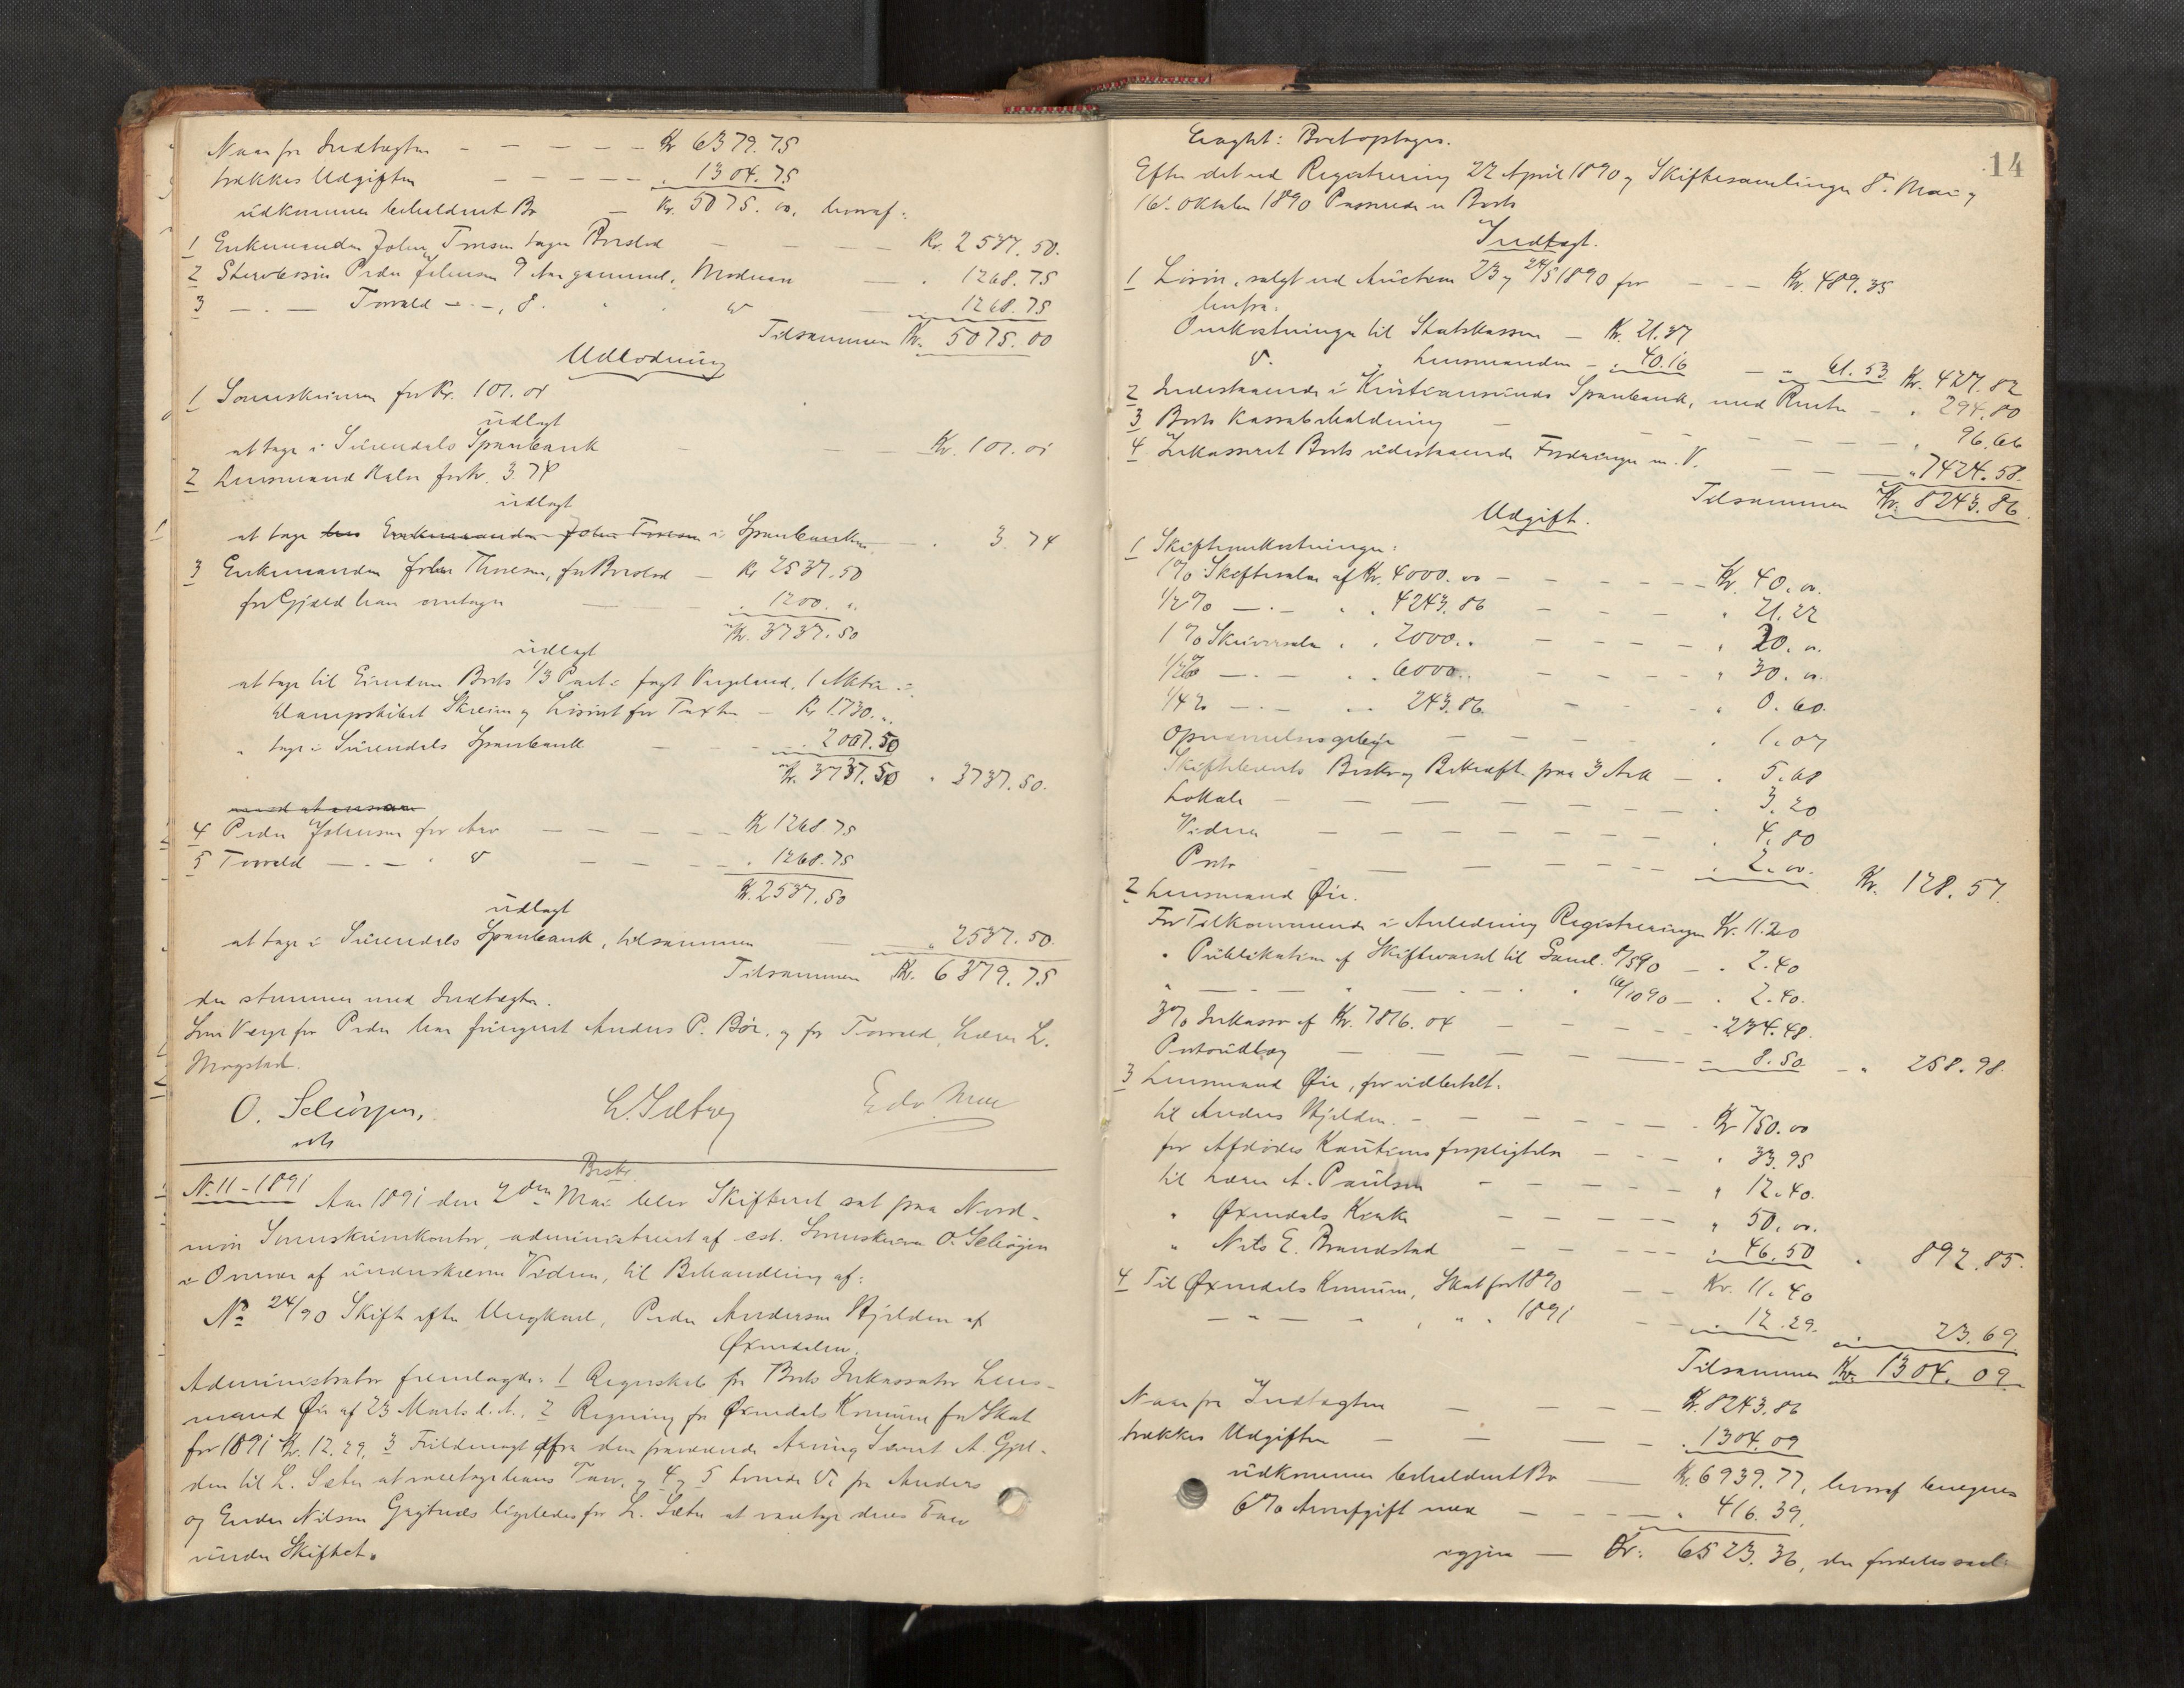 Naar fra Indtægten — — — — — Kr 6379.75
trækkes Udgiften — — — — — " 1304.75
udkommer beholdent Bo — Kr. 5075.00, hvoraf:
1 Enkemanden John Toresen tager Boeslod — — — — Kr. 2537.50.
2 Stervbosøn Peder Johnsen 9 Aar gammel, Modrearv — " 1268.75
3 — " — Torvald — " —, 8. " " " — 1268.75
Tilsammen Kr. 5075.00
Udlodning
1 Sorenskriveren for Kr. 101.01
udlagt
at tage i Surendals Sparebank — — — Kr. 101.01
2 Lensmand Halse for kr. 3.74
udlagt
at tage hos Enkemanden John Toresen i Sparebanken — " 3.74
3 Enkemanden John Thoresen, for Boeslod — Kr 2537.50
for Gjæld han overtager — — " 1200. "
Kr. 3737.50
udlagt
at tage til Eiendom Boets 1/3 Part i Jagt Vergeland, 1 Aktie i
Dampskibet Skreien og Løsøret for Taxten — Kr 1730. "
" tage i Surendals Sparebank — — 2007.50
Kr. 3737.50 " 3737.50.
4 Peder Johnsen for Arv — — — — Kr 1268.75
5 Torvald — " — " — — — " 1268.75
Kr. 2537.50
udlagt
at tage i Surendals Sparebank, tilsammen — " 2537.50.
Tilsammen Kr. 6379.75
der stemmer med Indtægten.
Som Verge for Peder har fungeret Anders P. Bøe, og for Torvald, Lærer L.
Mogstad.
O. Solürgen,
L. Sæther
N. 11 - 1891
Aar 1891 den 2den Mai blev Skifteret sat paa Nord-
møre Sorenskriverkontor, administreret af cst. Sorenskriver O. Solürgen
i Overvær af underskrevne Vidner, til Behandling af:
No 24/90 Skifte efter Ungkarl, Peder Andersen Hjelden af
Øxendalen.
Administrator fremlagde: 1 Regnskab fra Boets Inkassator Lens-
mand Øie af 23 Marts d. A., 2 Regning fra Øxendals Komune for Skat
for 1891 Kr. 12.29, 3 Fuldmagt fra den fraværende Arving Sivert A. Gjel-
den til L. Sæter at modtage hans Tarv, og 4 og 5 fra Anders
og Endre Nilsen Grytnes ligeledes for L. Sæter at varetage deres Tarv
under Skiftet.
14
Eragtet: Boet optages.
Efter det ved Registrering 22 April 1890 og Skiftesamlinger 8. Mai og
16. Oktober 1890 Passerede er Boets
Indtægt.
1 Løsøre, solgt ved Auction 23 og 24/5 1890 for — — Kr. 489.35
herfra:
Omkostninger til Statskassen — Kr. 21.37
" " Lensmanden — " 40.16 — " 61.53 Kr. 427.82
2 Indestaaende i Kristiansunds Sparebank, med Renter — " 294.80
3 Boets Kassabeholdning — — — — — " 96.66
4 Inkasseret Boets udestaaende Fordringer m. V. — — " 7424.58
Tilsammen Kr. 8243.86
Udgift.
1 Skifteomkostninger:
1% Skiftesalær af Kr. 4000.00 — — — — Kr. 40.00
1/2% — " — " " 4243.86 — — — " 21.22
1% Skriversalær " " 2000. " — — — " 20.00
1/2% — " — " " 6000. — — — " 30.00
1/4% — " — " " 243.86 — — " 0.60.
Opnævnelsesgebyr — — — — " 1.07
Skiftebrevets Beskr. og Bekræft. paa 3 Ark — " 5.68
Lokale — — — — — " 3.20
Vidner — — — — — " 4.80
Porto — — — — — " 2.00 Kr. 128.57.
2 Lensmand Øie.
For Tilkommende i Anledning Registreringen Kr. 11.20
" Publikation af Skiftevarsel til Saml. 8/5 90 — " 2.40
" — " — " — " — " 16/10 90 — " 2.40.
3% Inkasso af Kr. 7816.04 — — — " 234.48
Portoudlæg — — — — " 8.50 — " 258.98.
3 Lensmand Øie, for udbetalt.
til Anders Hjelden — — — — Kr 750.00
for Afdødes Kautionsforpligtelse — — — " 33.95
til Lærer A. Paulsen — — — — " 12.40.
" Øxendals Kirke — — — — " 50.00.
" Nils E. Brandstad — — — " 46.50 " 892.85.
4 Til Øxendals Komune, Skat for 1890 — — Kr. 11.40
— " — " — " , " " 1891 — " 12.29. " 23.69
Tilsammen Kr. 1304.09
Naar fra Indtægten — — — — Kr. 8243.86
trækkes Udgiften — — — — " 1304.09
udkommer beholdent Bo — Kr. 6939.77, hvoraf beregnes
6% Arveafgift med — — — " 416.39.
igjen — Kr. 6523.36, der fordeles saal: